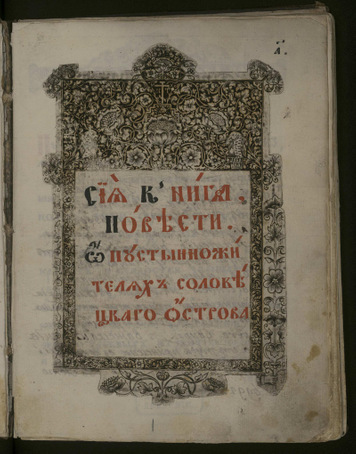 а҃.
Сїѧ̀ Кни́га.
По́вѣсти.
Ѡ҆ пустынножи́
телѧхъ соловѣ́
цкаго ѻ҆́строва